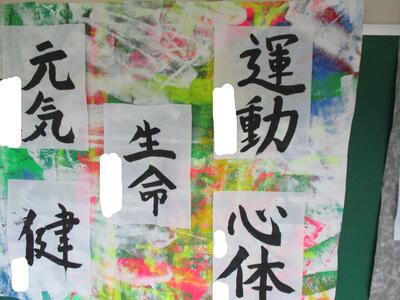 元気
運動
生命
健
心体